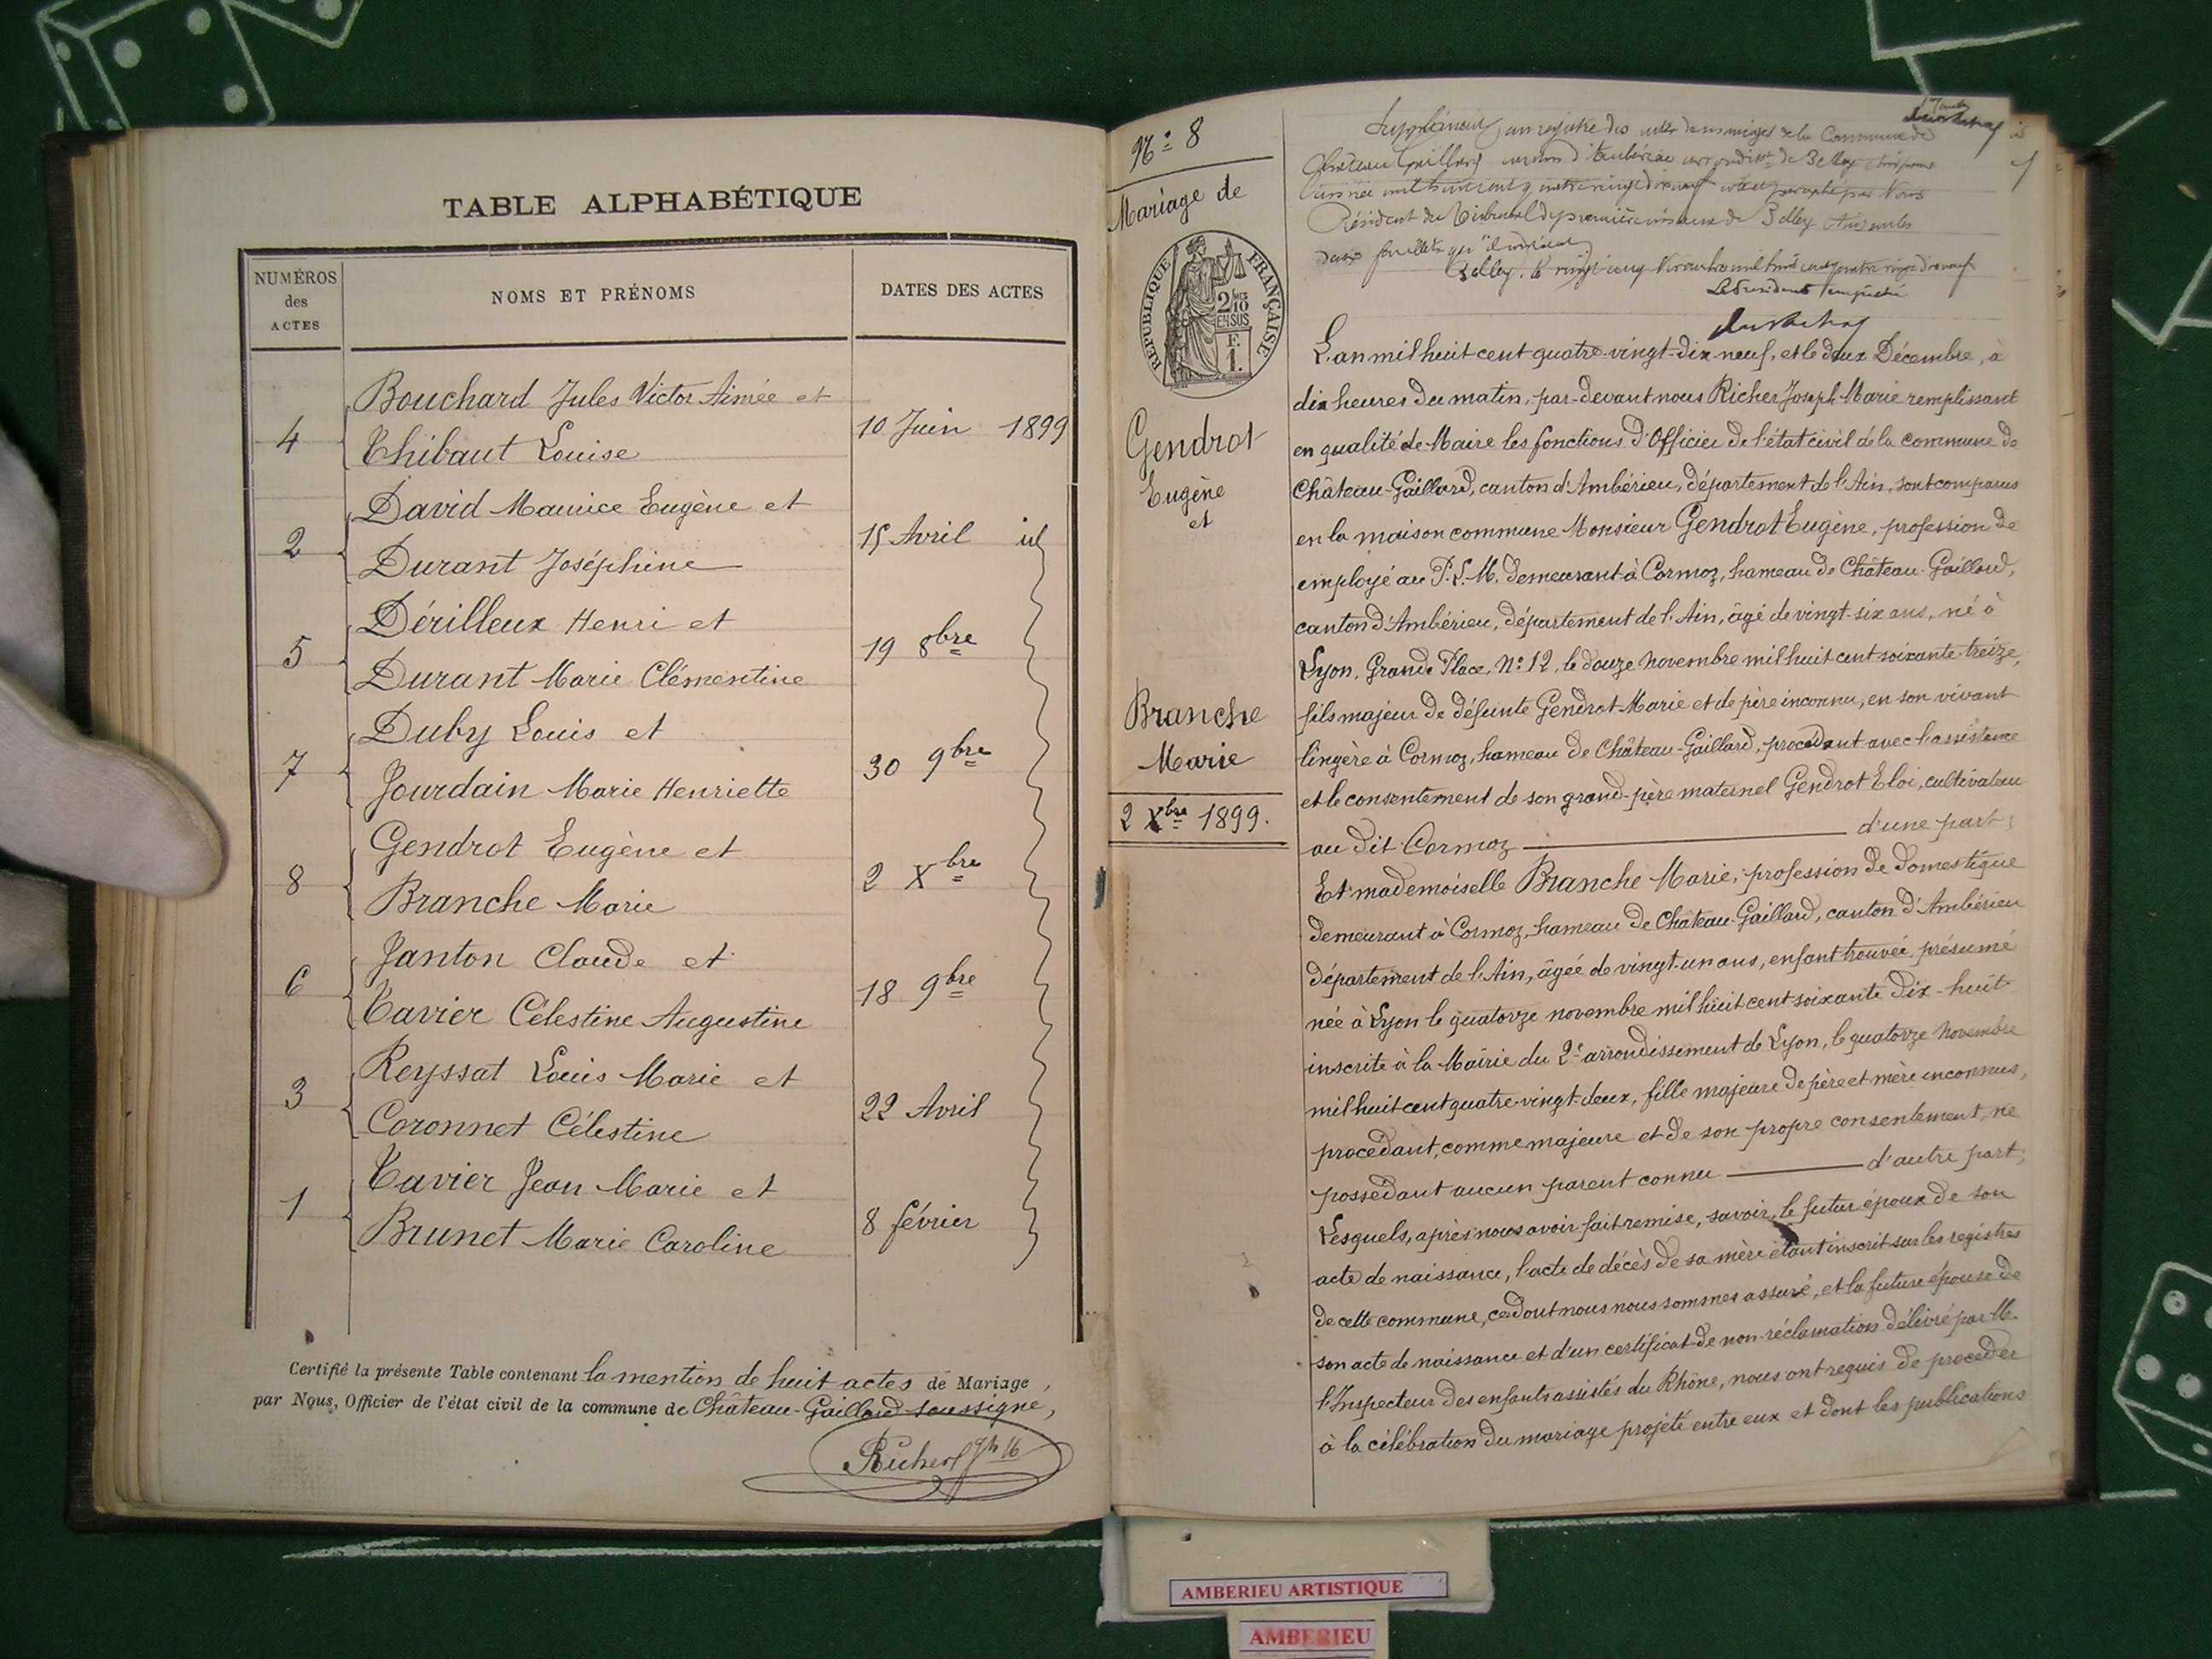 TABLE ALPHABÉTIQUE
NUMÉROS des ACTES
NOMS ET PRÉNOMS
DATES DES ACTES
Bouchard Jules Victor Aimée et
4 10 Juin 1899
Thibaut Louise
David Maurice Eugène et
2 15 Avril id
Durant Joséphine
Dérilleux Henri et
5 19 8bre
Durant Marie Clémentine
Duby Louis et
7 30 9bre
Jourdain Marie Henriette
Gendrot Eugène et
8 2 Xbre
Branche Marie
Janton Claude et
6 18 9bre
Tavier Célestine Augustine
Reyssat Louis Marie et
3 22 Avril
Coronnet Célestine
Tavier Jean Marie et
1 8 février
Brunet Marie Caroline
Certifié la présente Table contenant la mention de huit actes de Mariage,
par Nous, Officier de l'état civil de la commune de Château-Gaillard soussigné,
Richer
Nº 8
Mariage de
RÉPUBLIQUE FRANÇAISE
2/10 EN SUS
F. 1.
Gendrot
Eugène
et
Branche
Marie
2 Xbre 1899.
au registre des de la Commune de
Château Gaillard de Belley
Président du Tribunal de première instance de Belley
deux feuillets
Belley, le
Le Président empêché
L'an mil huit cent quatre-vingt-dix-neuf, et le deux Décembre, à
dix heures du matin, par-devant nous Richer Joseph Marie remplissant
en qualité de Maire les fonctions d'Officier de l'état civil de la commune de
Château-Gaillard, canton d'Ambérieu, département de l'Ain, sont comparus
en la maison commune Monsieur Gendrot Eugène, profession de
employé au P.L.M. demeurant à Cormoz, hameau de Château-Gaillard,
canton d'Ambérieu, département de l'Ain, âgé de vingt-six ans, né à
Lyon, Grande Place, Nº 12, le douze novembre mil huit cent soixante-treize,
fils majeur de défunte Gendrot Marie et de père inconnu, en son vivant
lingère à Cormoz, hameau de Château-Gaillard, procédant avec l'assistance
et le consentement de son grand-père maternel Gendrot Eloi, cultivateur
au dit Cormoz d'une part;
Et mademoiselle Branche Marie, profession de domestique
demeurant à Cormoz, hameau de Château-Gaillard, canton d'Ambérieu
département de l'Ain, âgée de vingt-un ans, enfant trouvée présumé
née à Lyon le quatorze novembre mil huit cent soixante dix-huit
inscrite à la Mairie du 2e arrondissement de Lyon, le quatorze novembre
mil huit cent quatre-vingt-deux, fille majeure de père et mère inconnus,
procédant, comme majeure et de son propre consentement, ne
possédant aucun parent connu d'autre part;
Lesquels, après nous avoir fait remise, savoir, le futur époux de son
acte de naissance, l'acte de décès de sa mère étant inscrit sur les registres
de cette commune, ce dont nous nous sommes assuré, et la future épouse de
son acte de naissance et d'un certificat de non-réclamation délivré par M.
l'Inspecteur des enfants assistés du Rhône, nous ont requis de procéder
à la célébration du mariage projeté entre eux et dont les publications
AMBERIEU ARTISTIQUE
AMBERIEU